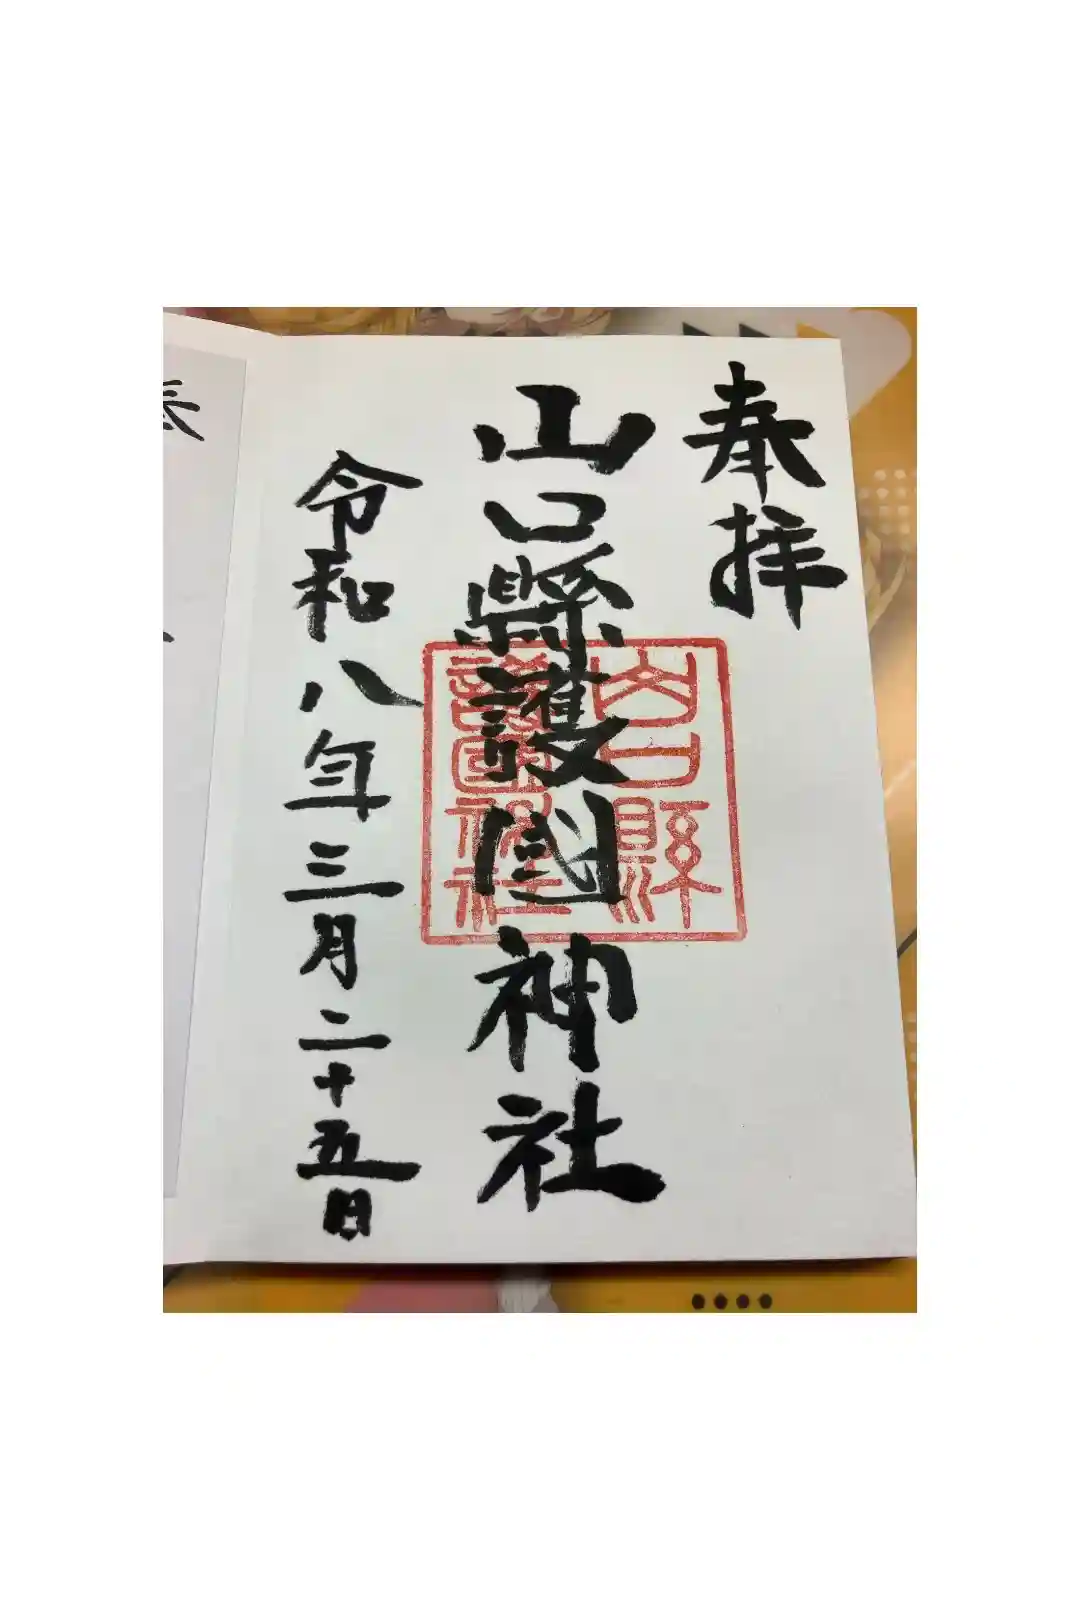 奉拝
山口縣護國神社
山口縣
護國神社
令和八年三月二十五日